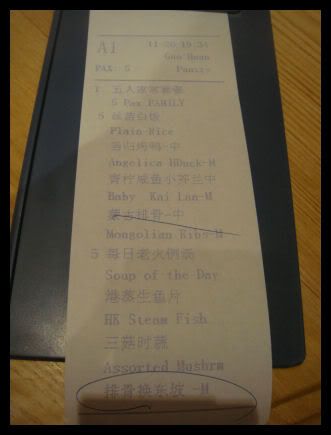 A1 11-26 19:34
Guo Huan
PAX: 5
1 五人家常套餐
5 Pax FAMILY
5 丝苗白饭
Plain Rice
当归烤鸭-中
Angelica HDuck-M
青柠咸鱼小芥兰中
Baby Kai Lan-M
蒙古排骨-中
Mongolian Ribs-M
5 每日老火例汤
Soup of the Day
港蒸生鱼片
HK Steam Fish
三菇时蔬
Assorted Mushrm
排骨换东坡 -M